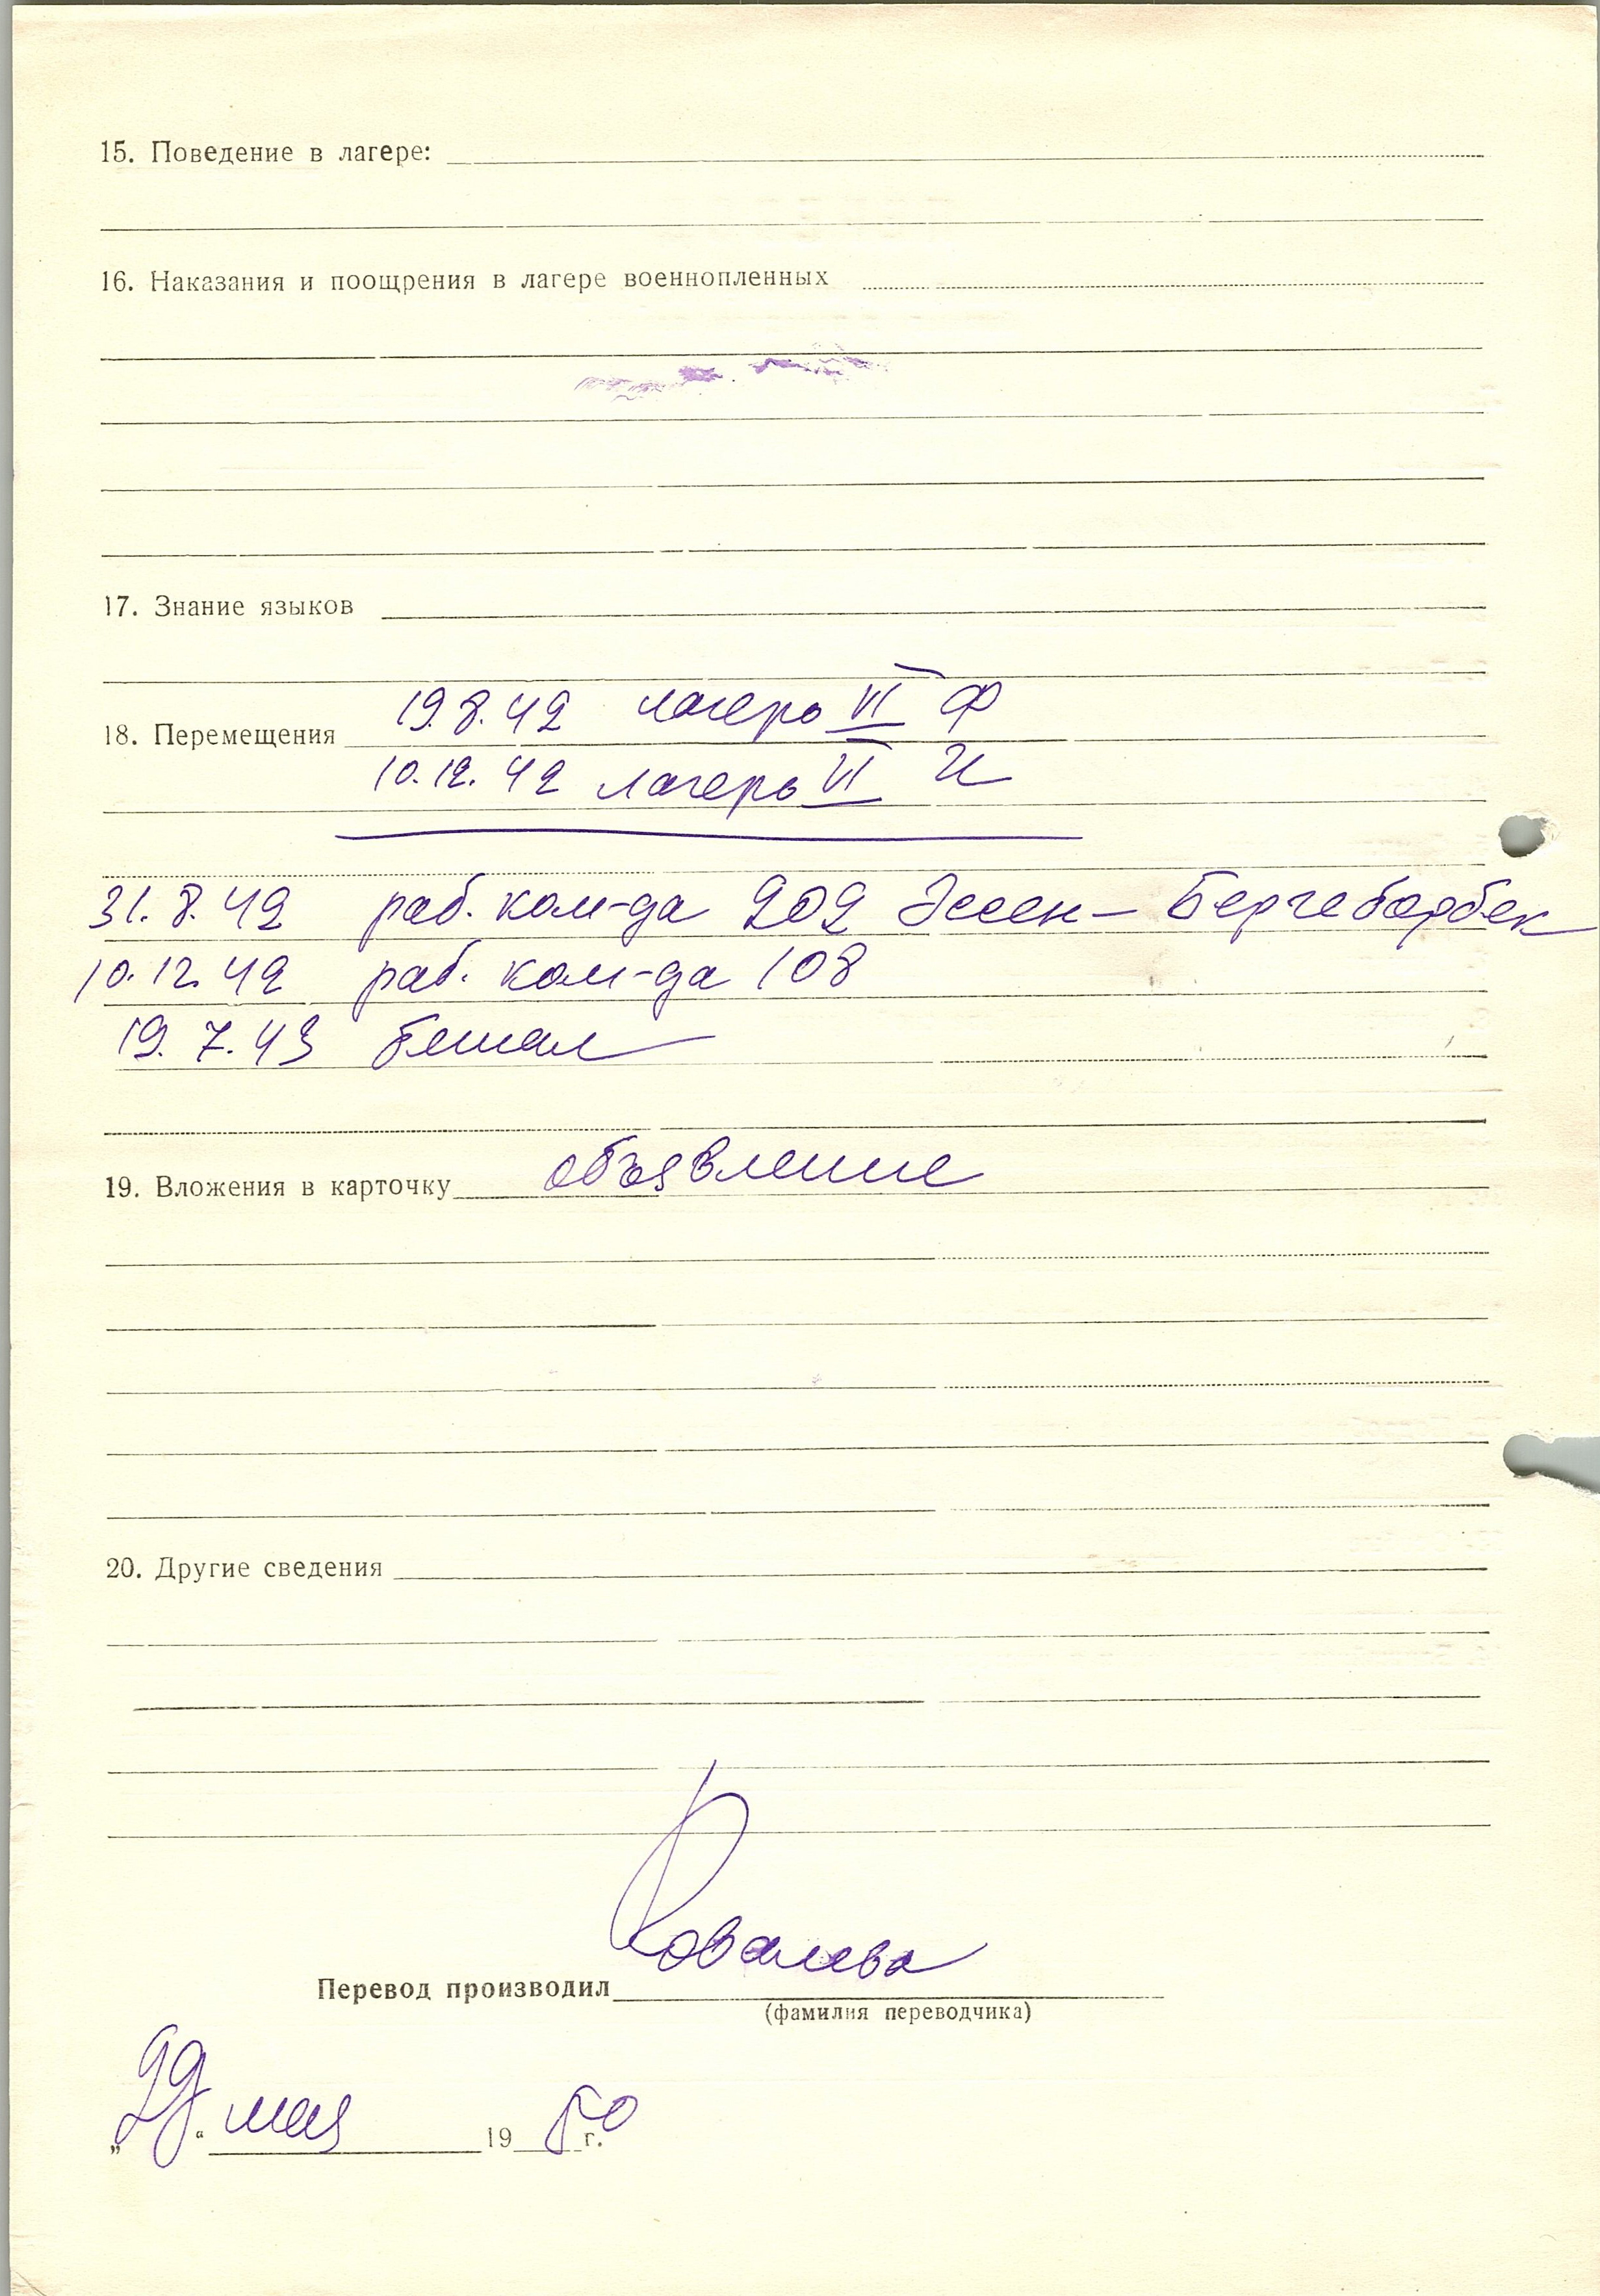 15. Поведение в лагере:
16. Наказания и поощрения в лагере военнопленных
17. Знание языков
19.8.42 лагерь VI Ф
18. Перемещения
10.12.42 лагерь VI
31.8.42 раб. ком-да 202 Эссен-Бергеборбек
10.12.42 раб. ком-да 108
19.7.43 бежал
19. Вложения в карточку объявление
20. Другие сведения
Перевод производил Ковалева
(фамилия переводчика)
„29“ мая 1950 г.